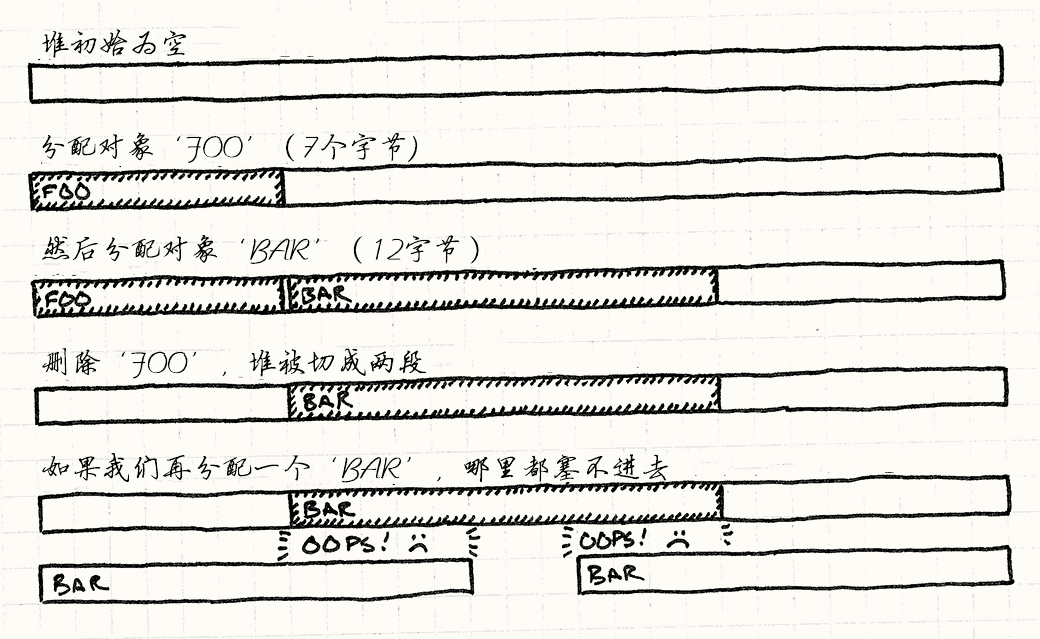 堆初始为空
分配对象 'FOO' (7个字节)
FOO
然后分配对象 'BAR' (12字节)
FOO BAR
删除 'FOO' , 堆被切成两段
BAR
如果我们再分配一个 'BAR' , 哪里都塞不进去
BAR
OOPS! OOPS!
BAR BAR